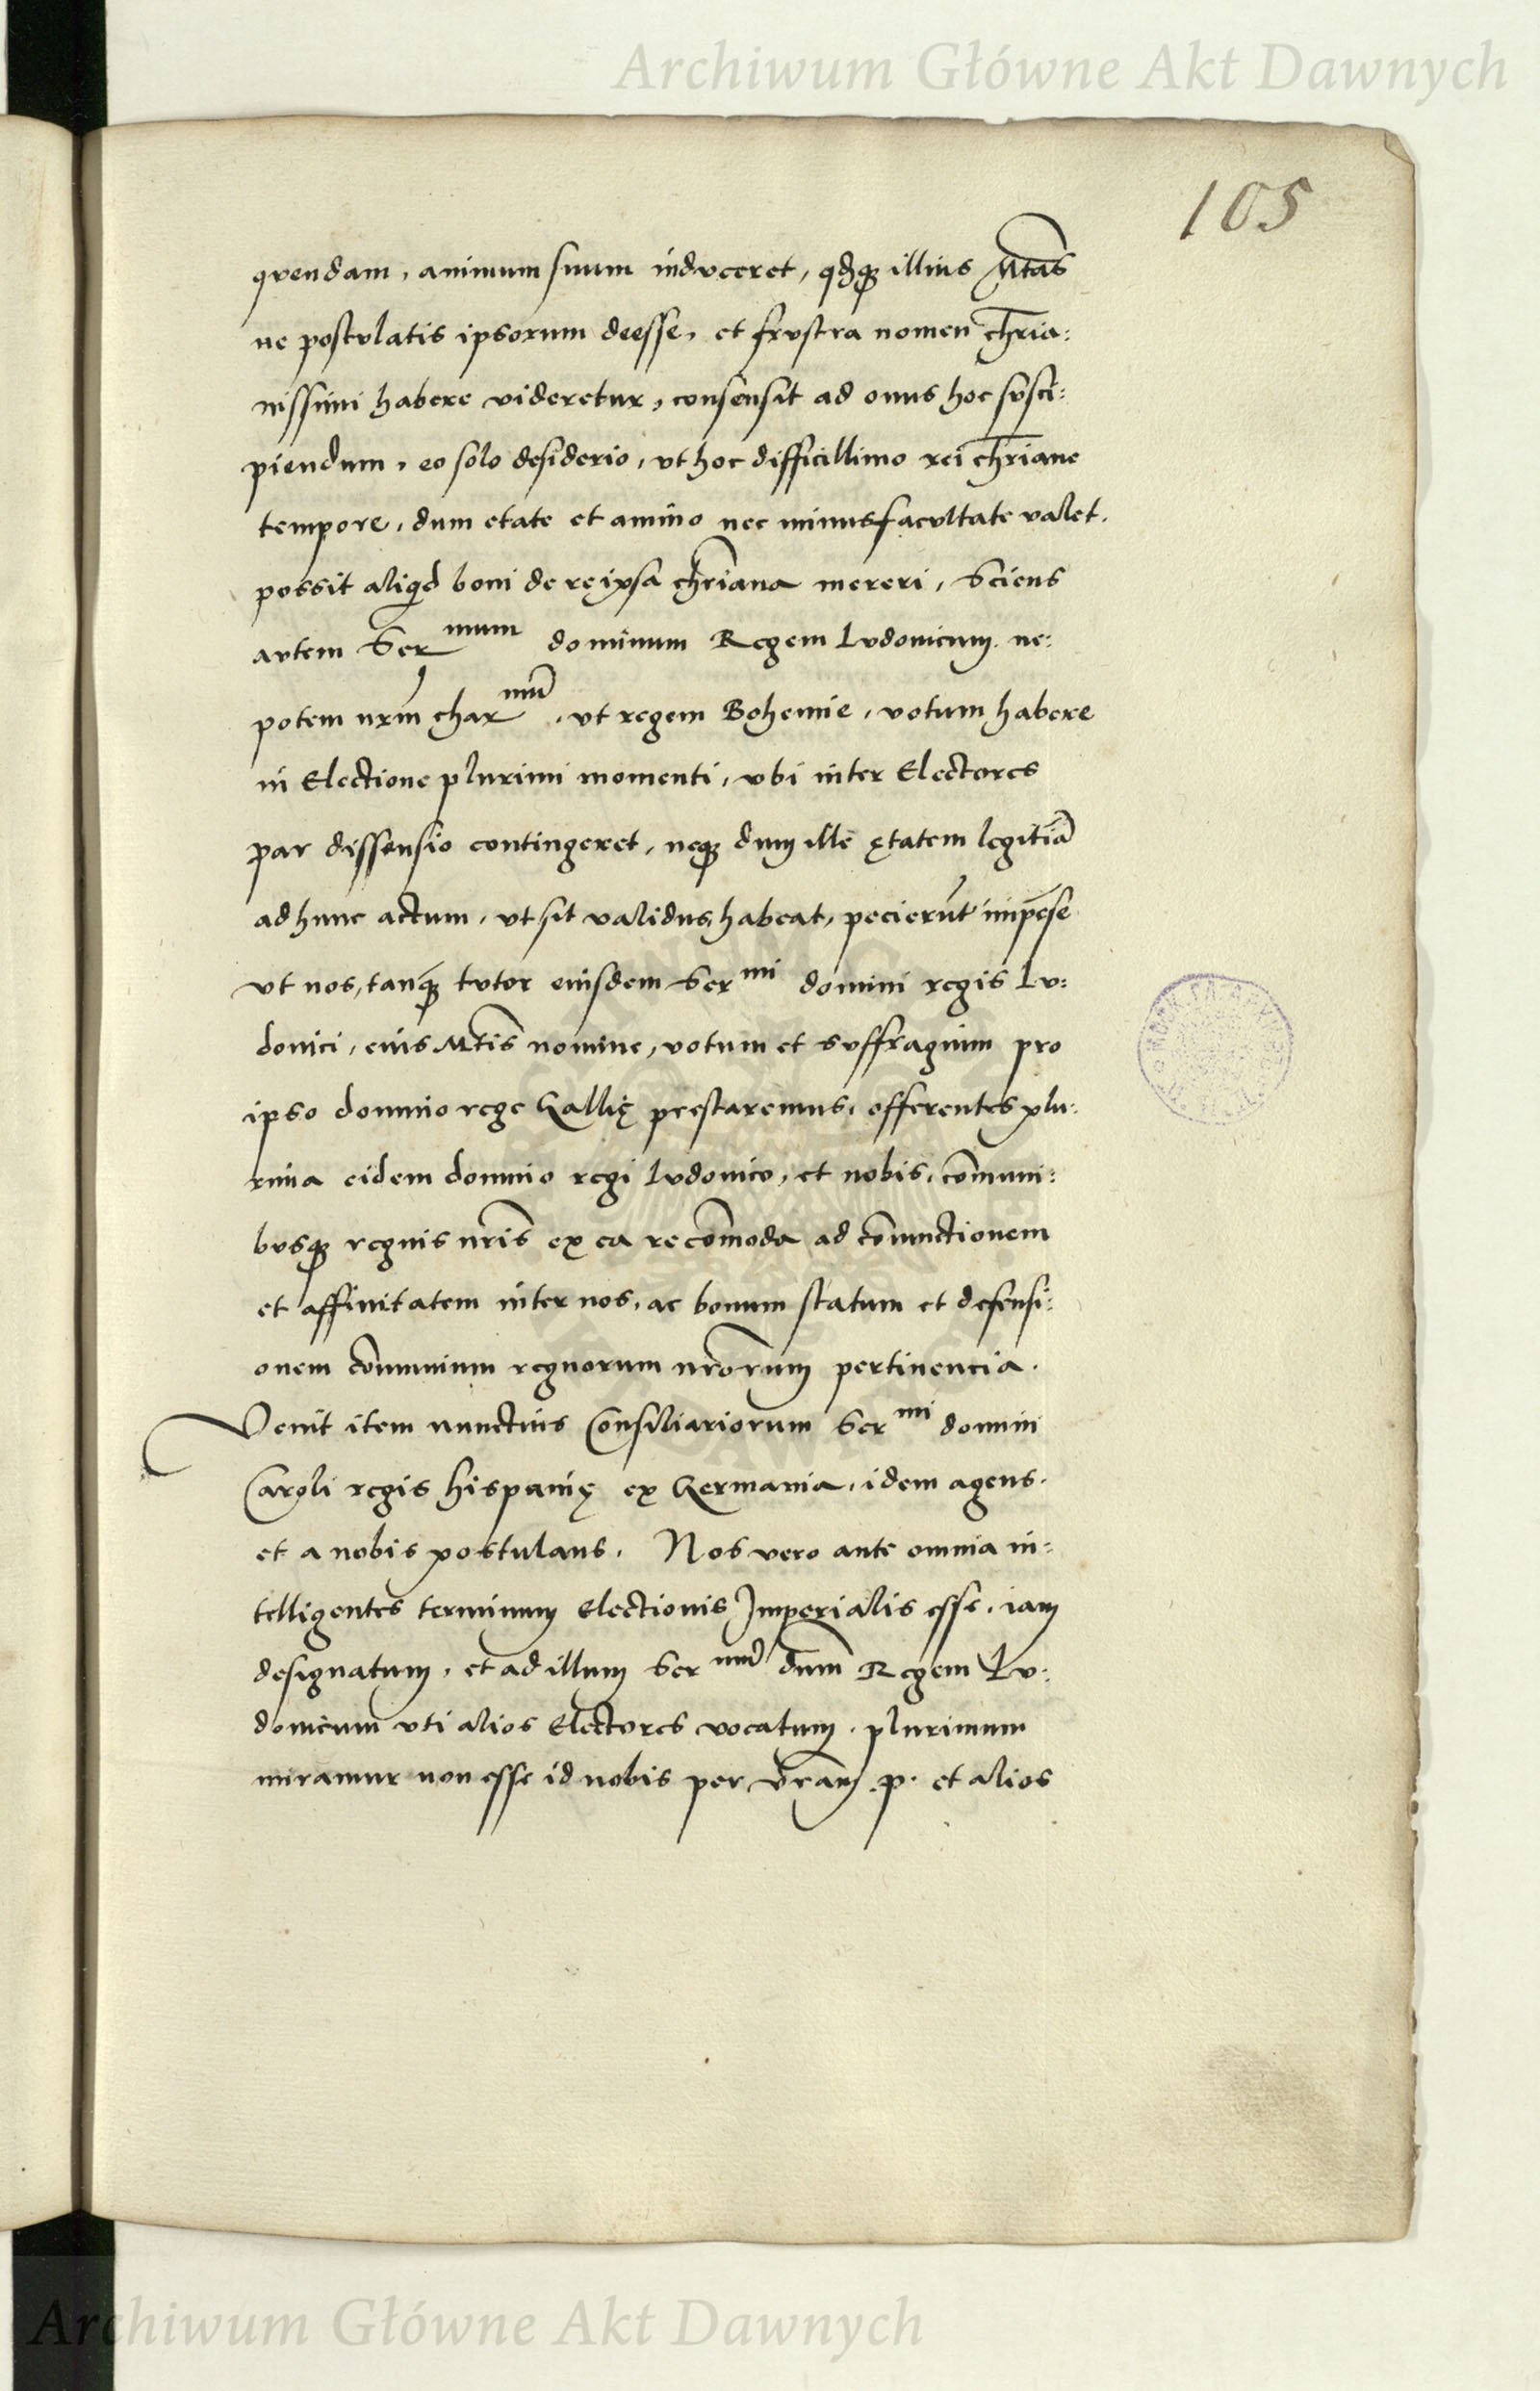 Archiwum Główne Akt Dawnych
105
qvendam, animum suum indvceret, qdque illius Mtas
ne postvlatis ipsorum deesse, et frvstra nomen chria:
nissimi habere videretur, consensit ad onus hoc svsci:
piendum, eo solo desiderio, vt hoc difficillimo rei chriane
tempore, dum etate et animo nec minus facvltate valet,
possit aliqd boni de re ipsa chriana mereri, Sciens
avtem Ser mum dominum Regem Lvdovicum ne:
potem nrm char mu, vt regem Bohemie, votum habere
in Electione plurimi momenti, vbi inter Electores
par dissensio contingeret, neque dum ille ętatem legitiā
ad hunc actum, vt sit validus, habeat, pecierūt impēse
vt nos, tanque tvtor eiusdem Ser mi domini regis Lv:
dovici, eius Mtis nomine, votum et svffragium pro
ipso domino rege Gallię prestaremus, offerentes plu:
rima eidem domino regi Lvdovico, et nobis, cōmuni:
bvsque regnis nris ex ea re cōmoda ad cōiunctionem
et affinitatem inter nos, ac bonum statum et defensi:
onem cōmunium regnorum nrorum pertinencia.
Venit item nunctius Consiliariorum Ser mi domini
Caroli regis Hispanię ex Germania, idem agens,
et a nobis postulans. Nos vero ante omnia in:
telligentes terminum Electionis Imperialis esse iam
designatum, et ad illum Ser mu dum Regem Lv:
dovicum vti alios Electores vocatum, plurimum
miramur non esse id nobis per vram p. et alios
Archiwum Główne Akt Dawnych